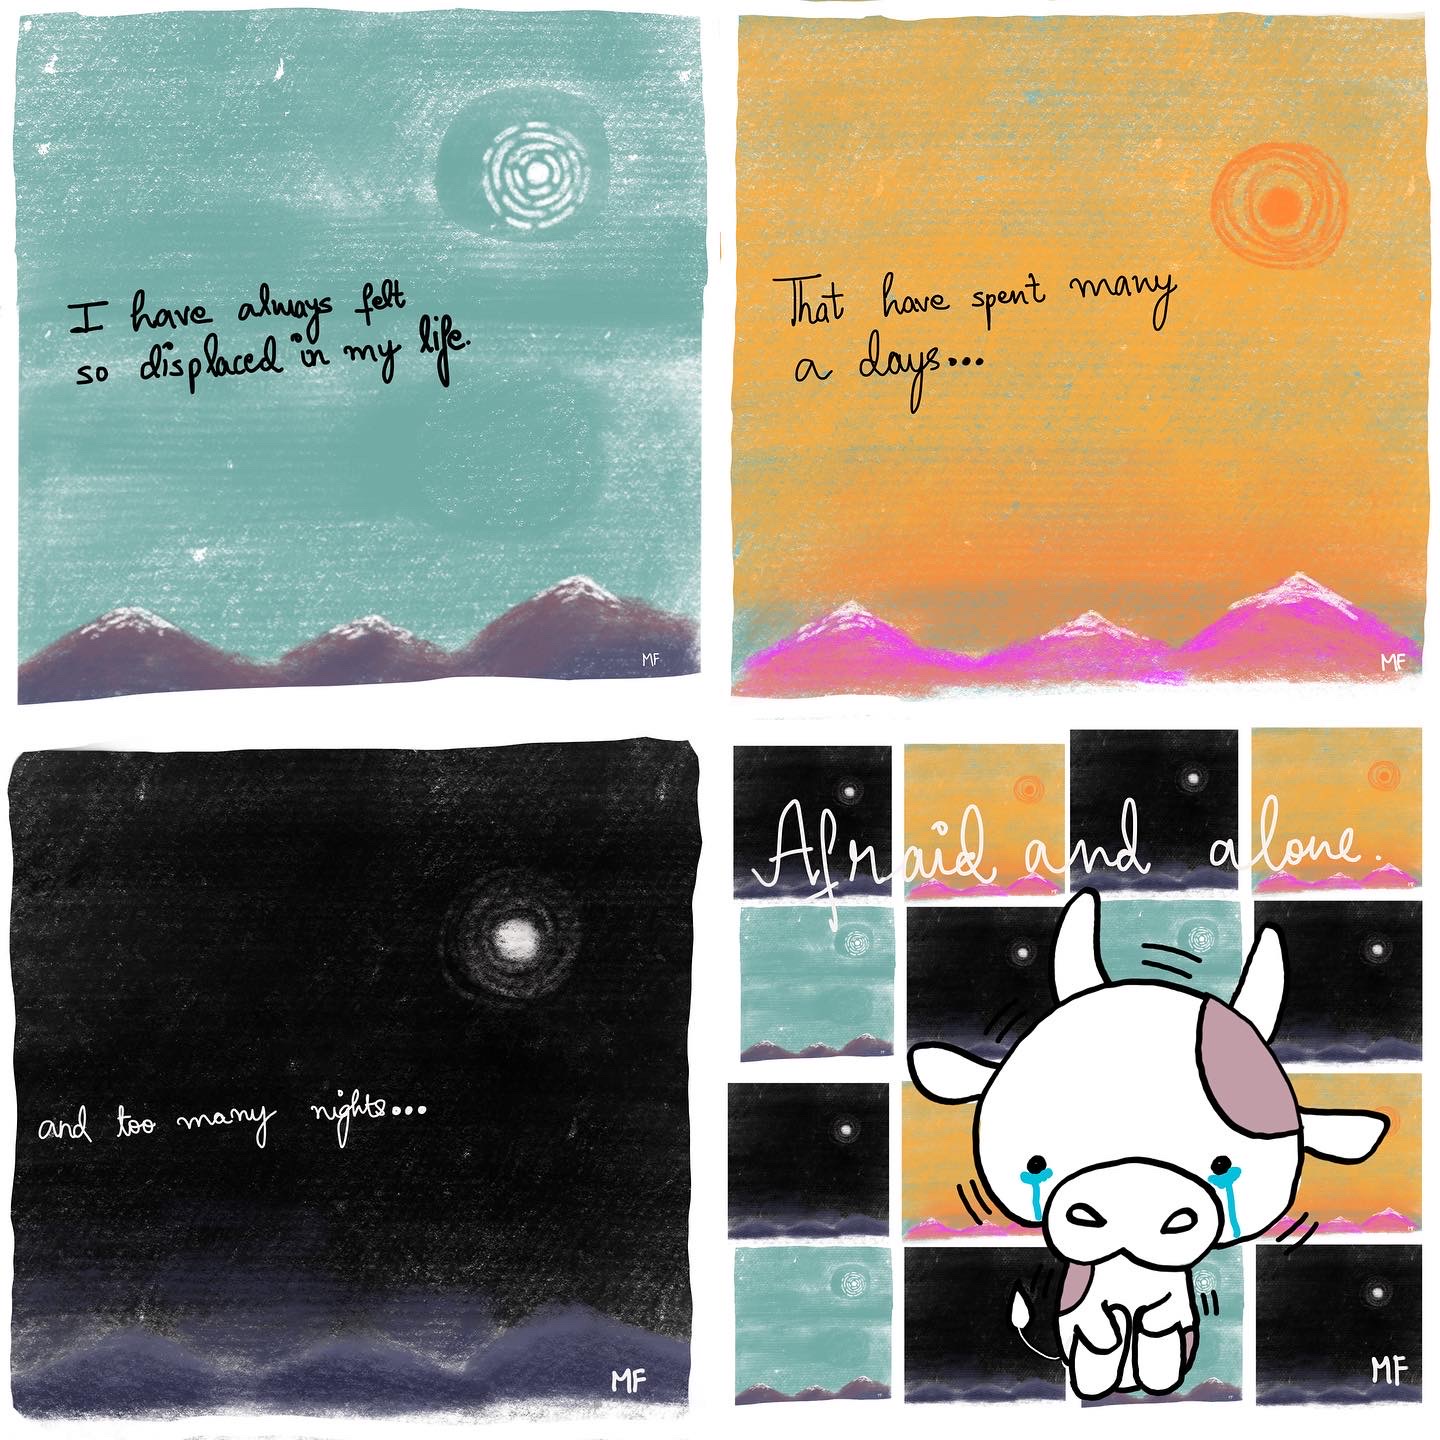 I have always felt
so displaced in my life.
MF
That have spent many
a days...
MF
and too many nights...
MF
Afraid and alone.
MF